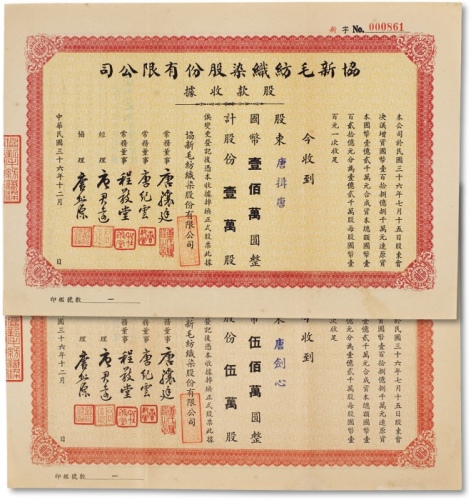 新字 No. 000861
協新毛紡織染股份有限公司
股款收據
本公司於民國三十六年七月十五日股東會
決議增國幣壹百億捌千萬元連原資
本國幣壹億貳千萬元合成資本總額國幣壹
百貳拾億元分為壹億貳千萬股每股國幣壹
百元一次收足
今收到
股東 唐揖唐
國幣壹佰萬圓整
計股份壹萬股
俟變更登記後憑本收據掉換正式股票此據
協新毛紡織染股份有限公司
常務董事 唐驤廷
常務董事 唐紀雲
常務董事 程敬堂
經理 唐君遠
協理
中華民國三十六年十二月 日
印鑑號數 一
於民國三十六年七月十五日股東會
今收到
東 唐劍心
幣伍佰萬圓整
股份伍萬股
更登記後憑本收據掉換正式股票此據
新毛紡織染股份有限公司
唐驤廷
唐紀雲
程敬堂
理 唐君遠
理
國三十六年十二月 日
印鑑號數 一